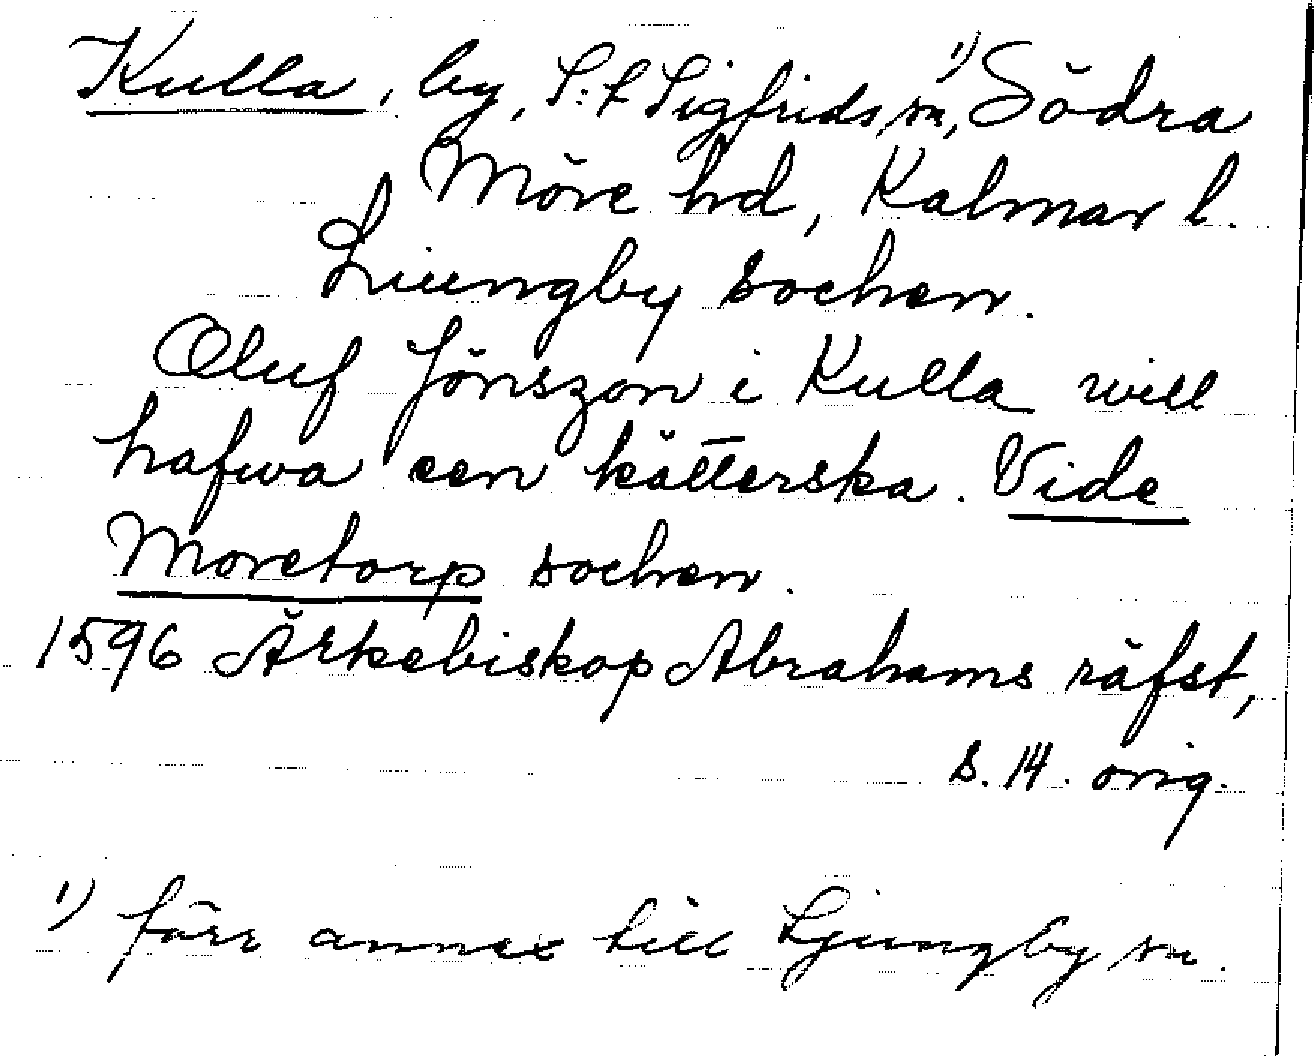 Kulla, by, S:t Sigfrids sn,¹⁾ Södra
Möre hd, Kalmar l.
Liungby sochen.
Oluf Jönszon i Kulla will
hafwa een kätterska. Vide
Moretorp sochen.
1596 Ärkebiskop Abrahams räfst,
s. 14. orig.
¹⁾ förr annex till Ljungby sn.